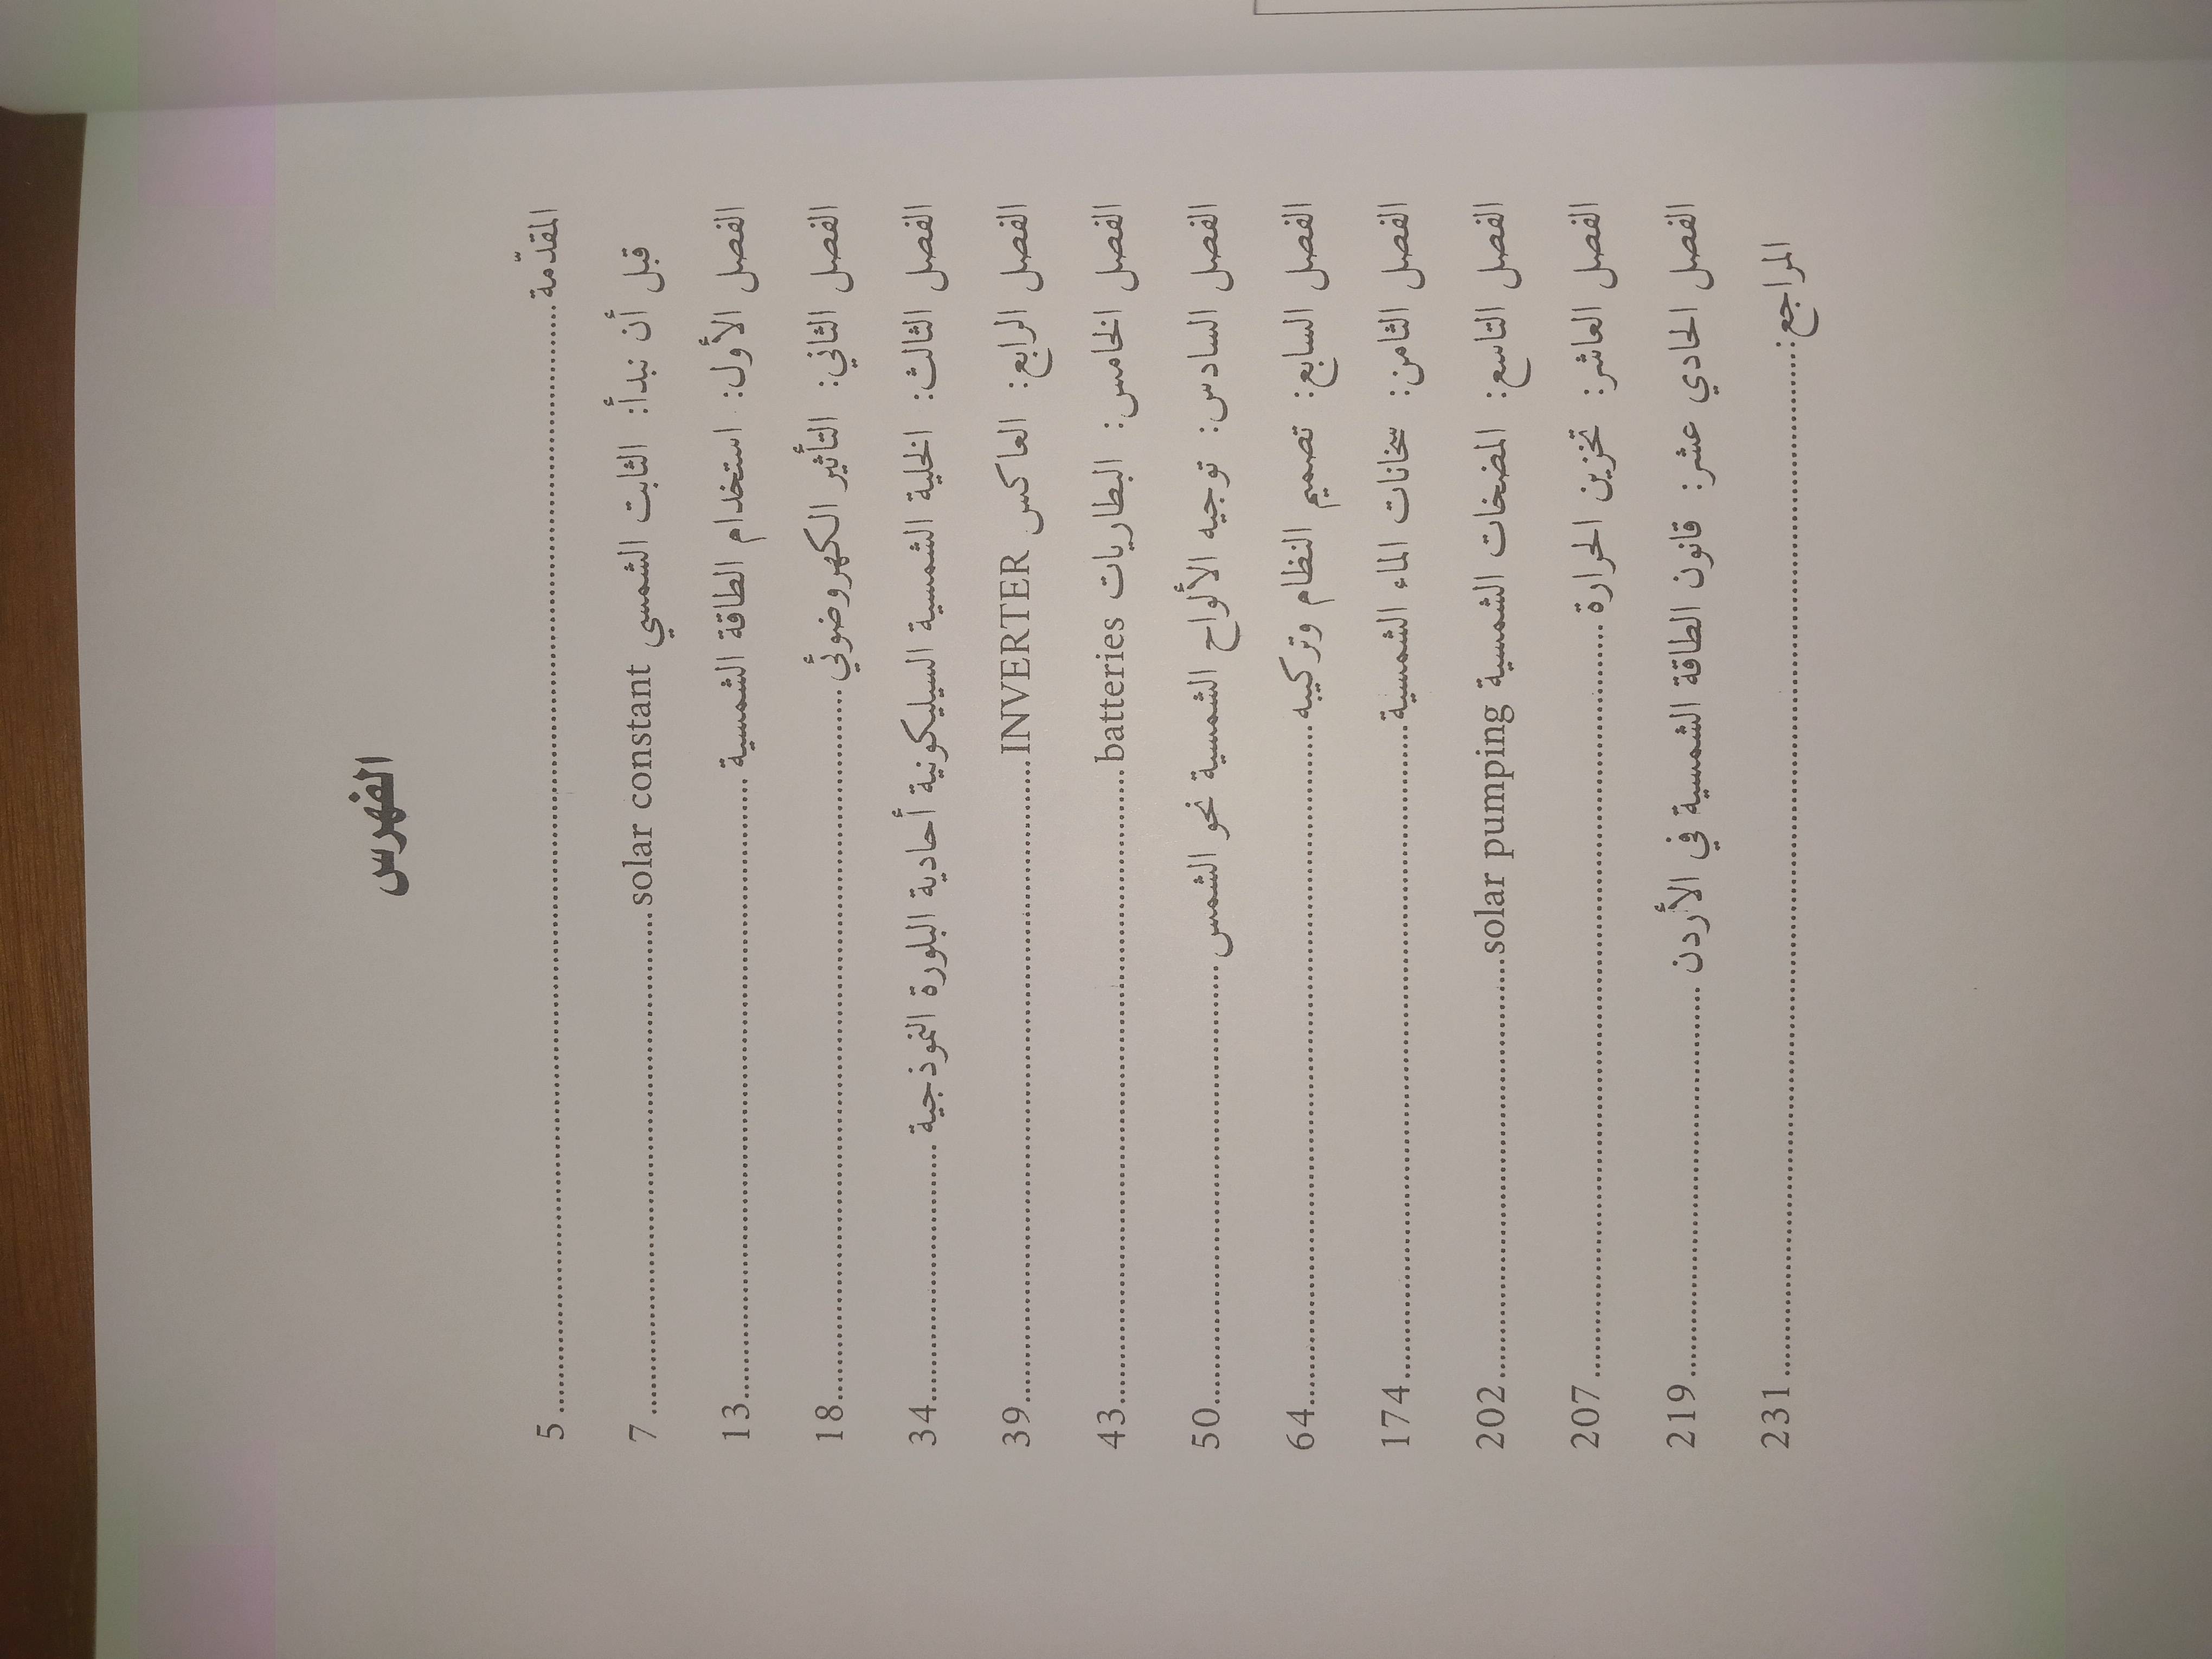 الفهرس
المقدّمة..............................5
قبل أن نبدأ: الثابت الشمسي solar constant..............................7
الفصل الأول: استخدام الطاقة الشمسية..............................13
الفصل الثاني: التأثير الكهروضوئي..............................18
الفصل الثالث: الخلية الشمسية السيليكونية أحادية البلورة النموذجية..............................34
الفصل الرابع: العاكس INVERTER..............................39
الفصل الخامس: البطاريات batteries..............................43
الفصل السادس: توجيه الألواح الشمسية نحو الشمس..............................50
الفصل السابع: تصميم النظام وتركيبه..............................64
الفصل الثامن: سخانات الماء الشمسية..............................174
الفصل التاسع: المضخات الشمسية solar pumping..............................202
الفصل العاشر: تخزين الحرارة..............................207
الفصل الحادي عشر: قانون الطاقة الشمسية في الأردن..............................219
المراجع:..............................231